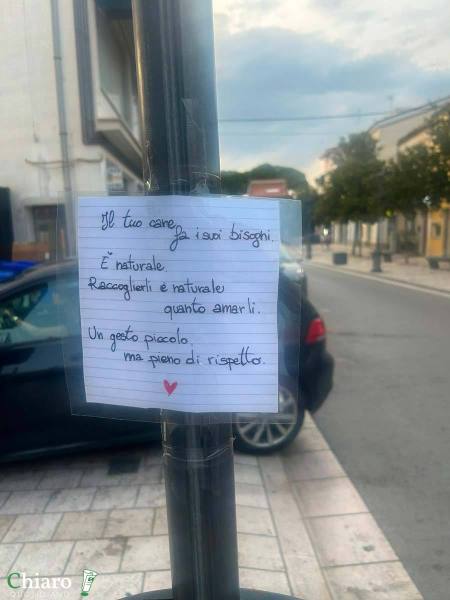 Il tuo cane
fa i suoi bisogni.
È naturale.
Raccoglierli è naturale
quanto amarli.
Un gesto piccolo,
ma pieno di rispetto.
Chiaro
QUOTIDIANO